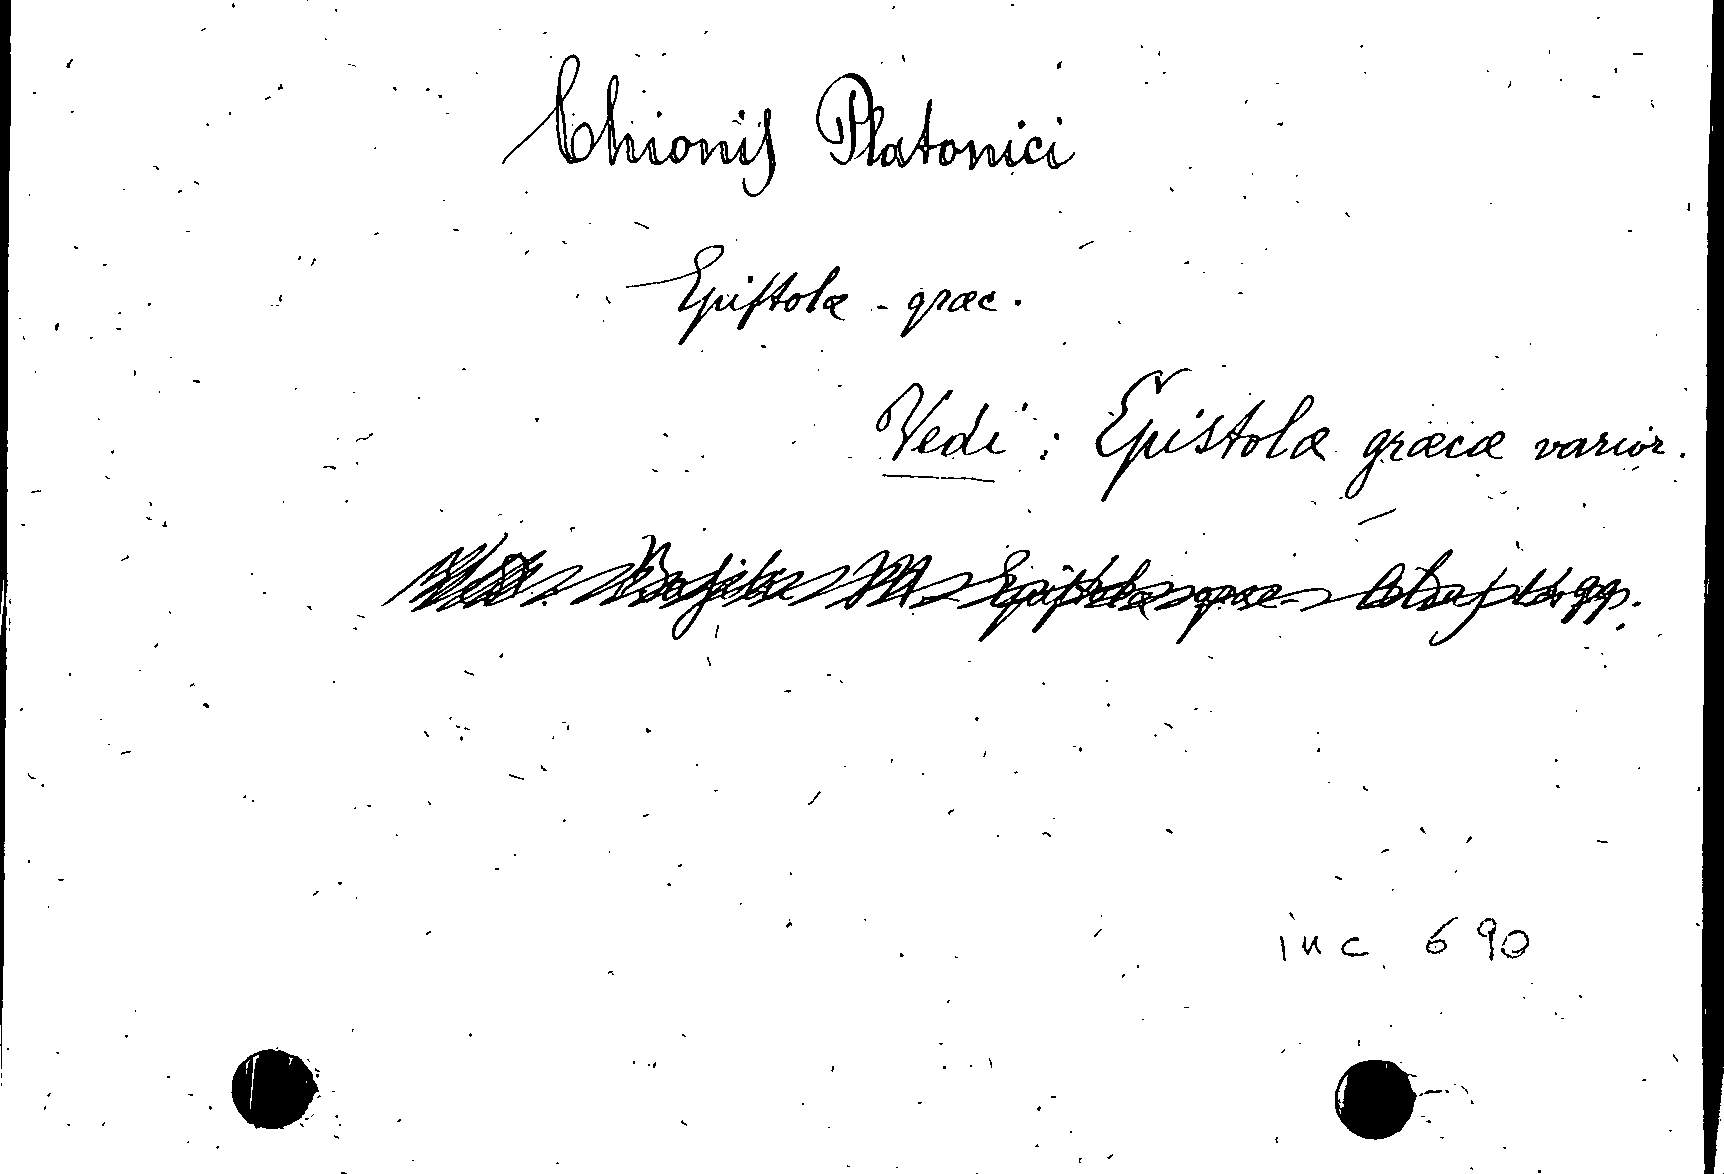 Chionis Platonici
Epistolæ - græc.
Vedi: Epistolæ græcæ varior.
inc. 690